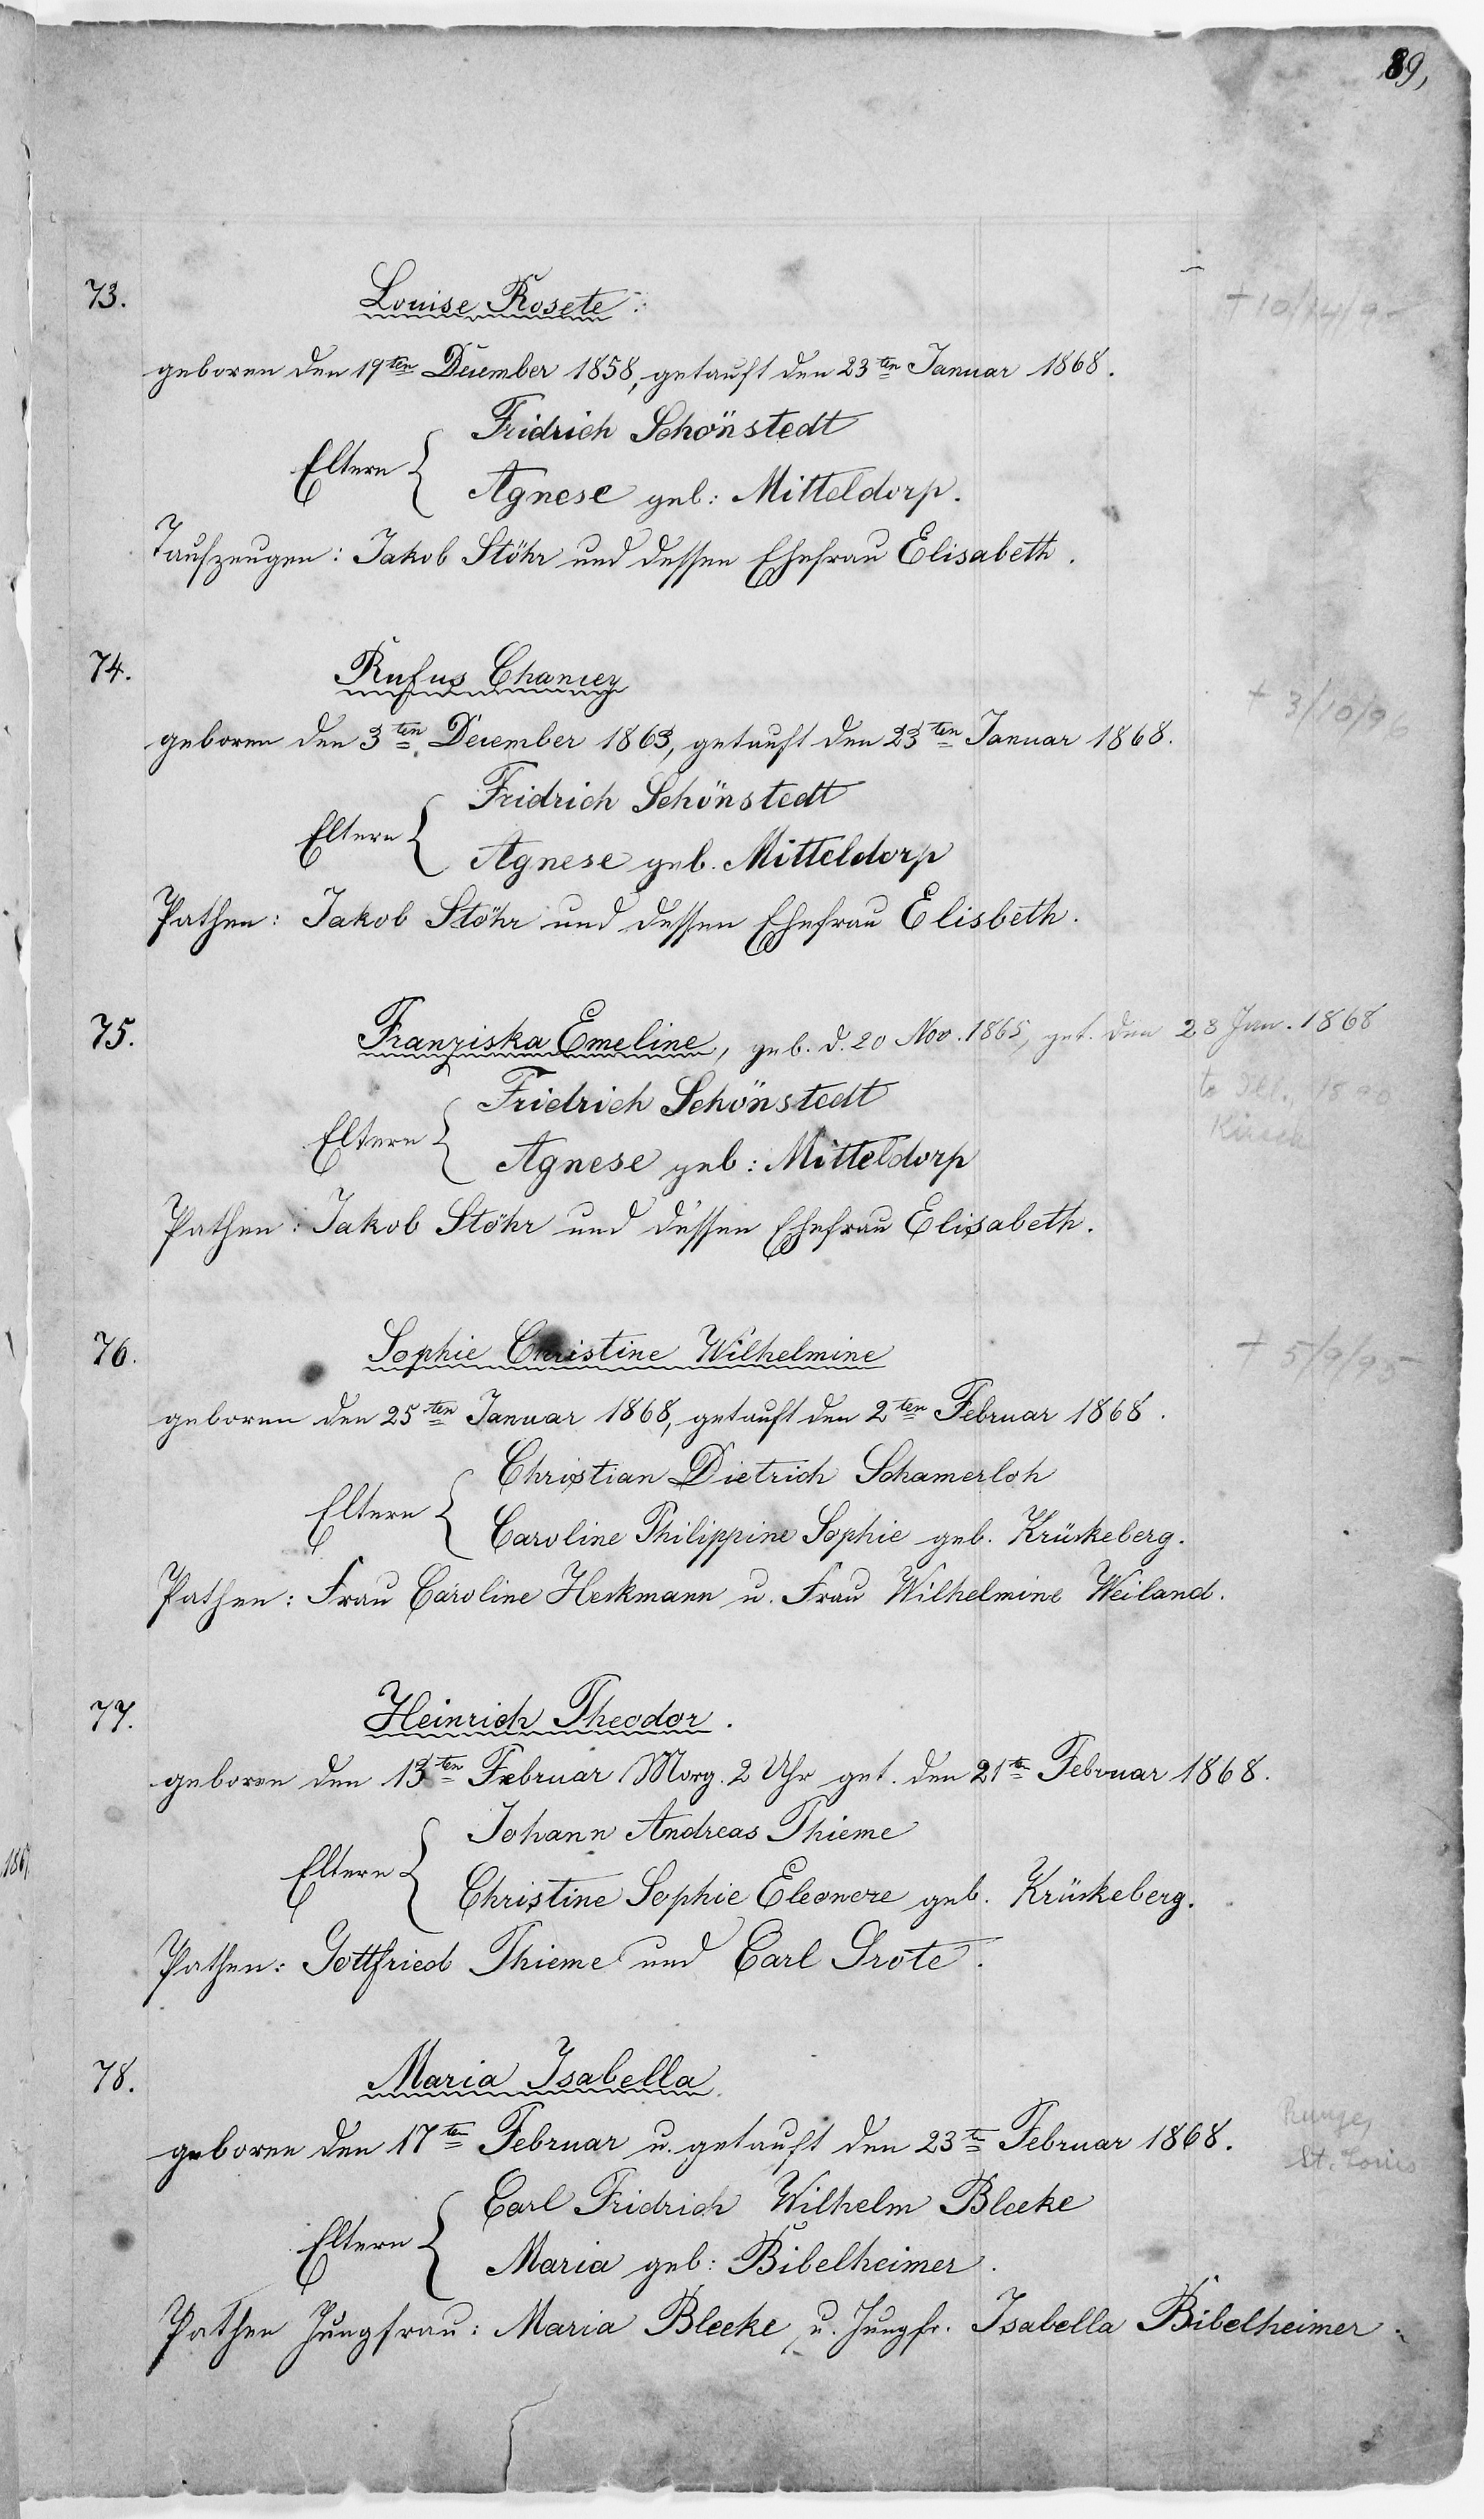 89,
73. Louise Rosete:
geboren den 19ten December 1858, getauft den 23ten Januar 1868.
Fridrich Schönstedt
Eltern {
Agnese geb: Mitteldorp.
Taufzeugen: Jakob Stöhr und dessen Ehefrau Elisabeth.
74. Rufus Chancey
+ 3/10/96
geboren den 3ten December 1863, getauft den 23ten Januar 1868.
Fridrich Schönstedt
Eltern {
Agnese geb. Mitteldorp
Pathen: Jakob Stöhr und dessen Ehefrau Elisbeth.
75. Franziska Emeline, geb. d. 20 Nov. 1865, get. den 23 Jan. 1868
to Ill.,
Fridrich Schönstedt
Eltern {
Agnese geb: Mitteldorp
Pathen: Jakob Stöhr und dessen Ehefrau Elisabeth.
76. Sophie Christine Wilhelmine
+ 5/9/95
geboren den 25ten Januar 1868, getauft den 2ten Februar 1868.
Christian Dietrich Schamerloh
Eltern {
Caroline Philippine Sophie geb. Krückeberg.
Pathen: Frau Caroline Heckmann u. Frau Wilhelmine Weiland.
77. Heinrich Theodor.
geboren den 13ten Februar Morg. 2 Uhr get. den 21ten Februar 1868.
Johann Andreas Thieme
Eltern {
Christine Sophie Eleonore geb. Krückeberg.
Pathen: Gottfried Thieme und Carl Grote.
78. Maria Isabella
geboren den 17ten Februar u. getauft den 23ten Februar 1868.
St. Louis
Carl Fridrich Wilhelm Bleeke
Eltern {
Maria geb: Bibelheimer.
Pathen Jungfrau: Maria Bleeke u. Jungfr. Isabella Bibelheimer.